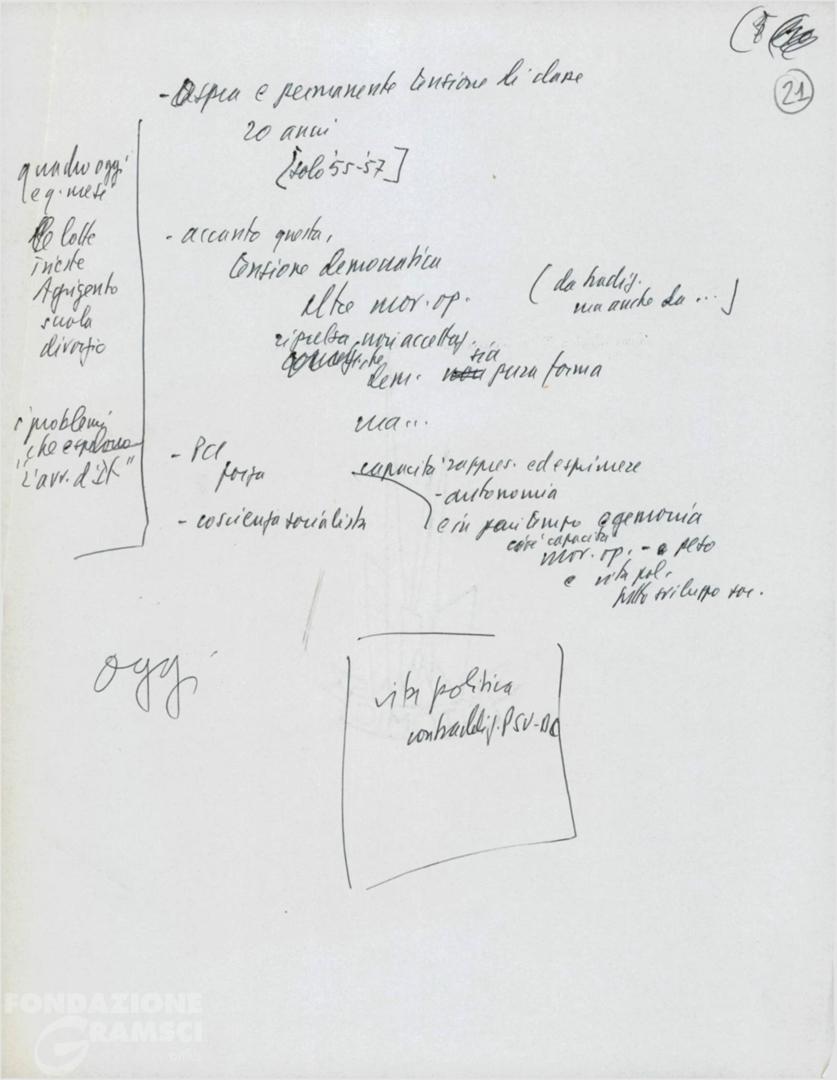 21
- Aspra e permanente tensione di classe
20 anni
[solo '55-'57]
quadro oggi
e q. mesi
le lotte
Trieste
Agrigento
scuola
divorzio
i problemi
che esplodono
"L'avv. d'IK"
- accanto questa,
tensione democratica
oltre mov. op.
(da tradiz.
ma anche da ...)
ripulsa, non accettaz.
dem. sia pura forma
ma...
- PCI
forza
- coscienza socialista
capacità rappres. ed esprimere
- autonomia
e in pari tempo egemonia
cioè capacità
mov. op. - e peso
e vita pol.
tutto sviluppo soc.
oggi
vita politica
contraddiz. PSU-DC
FONDAZIONE
GRAMSCI